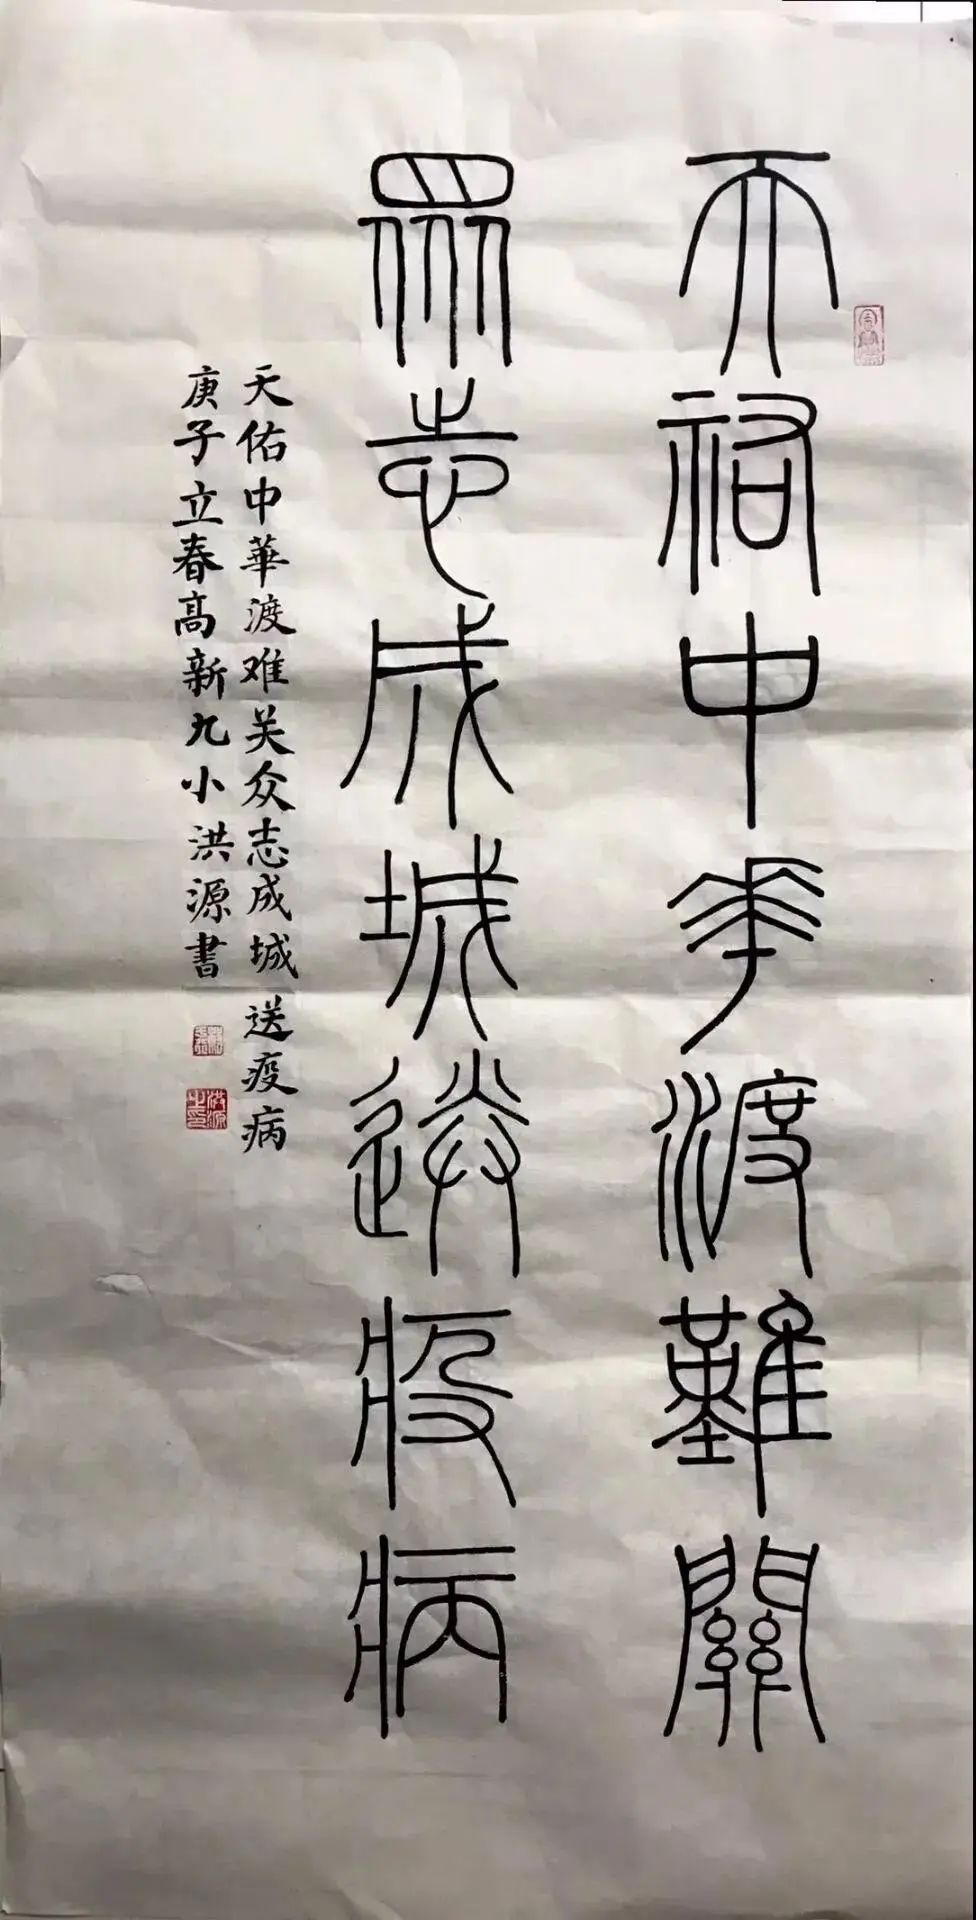 天祐中華渡難關
眾志成城送疫病
天佑中華渡难关众志成城送疫病
庚子立春高新九小洪源書
洪源之印